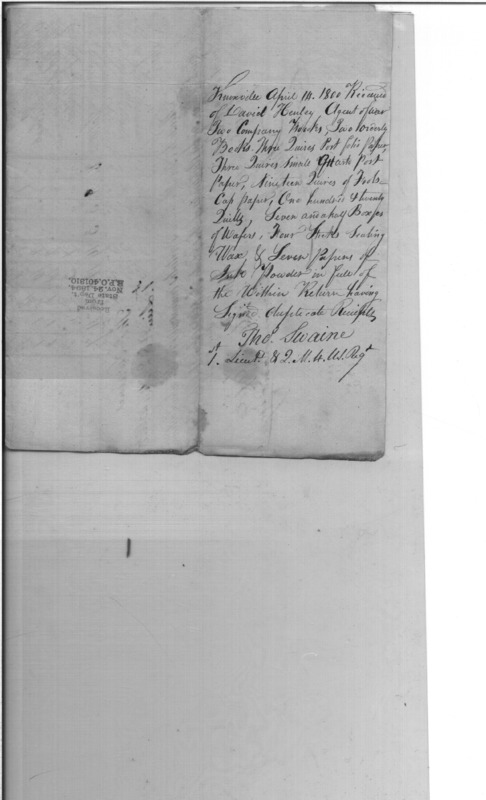 Knoxville April 14. 1800 Received
of David Henley Agent of War
Two Company Books, Two Orderly
Books, Three Quires Port folio Paper,
Three Quires Small Post
Paper, Nineteen Quires of Fools-
Cap paper, One hundred & twenty
Quills, Seven and a half Boxes
of Wafers, Four Sticks Sealing
Wax & Seven Papers of
Ink Powder in full of
the Within Return having
Signed duplicate Receipts
Thos. Swaine
1. Lieut. & Q. M. 4. U.S. Regt
Received
from
State Dep't,
Nov. 24, 1894.
R.P.O. 401810.